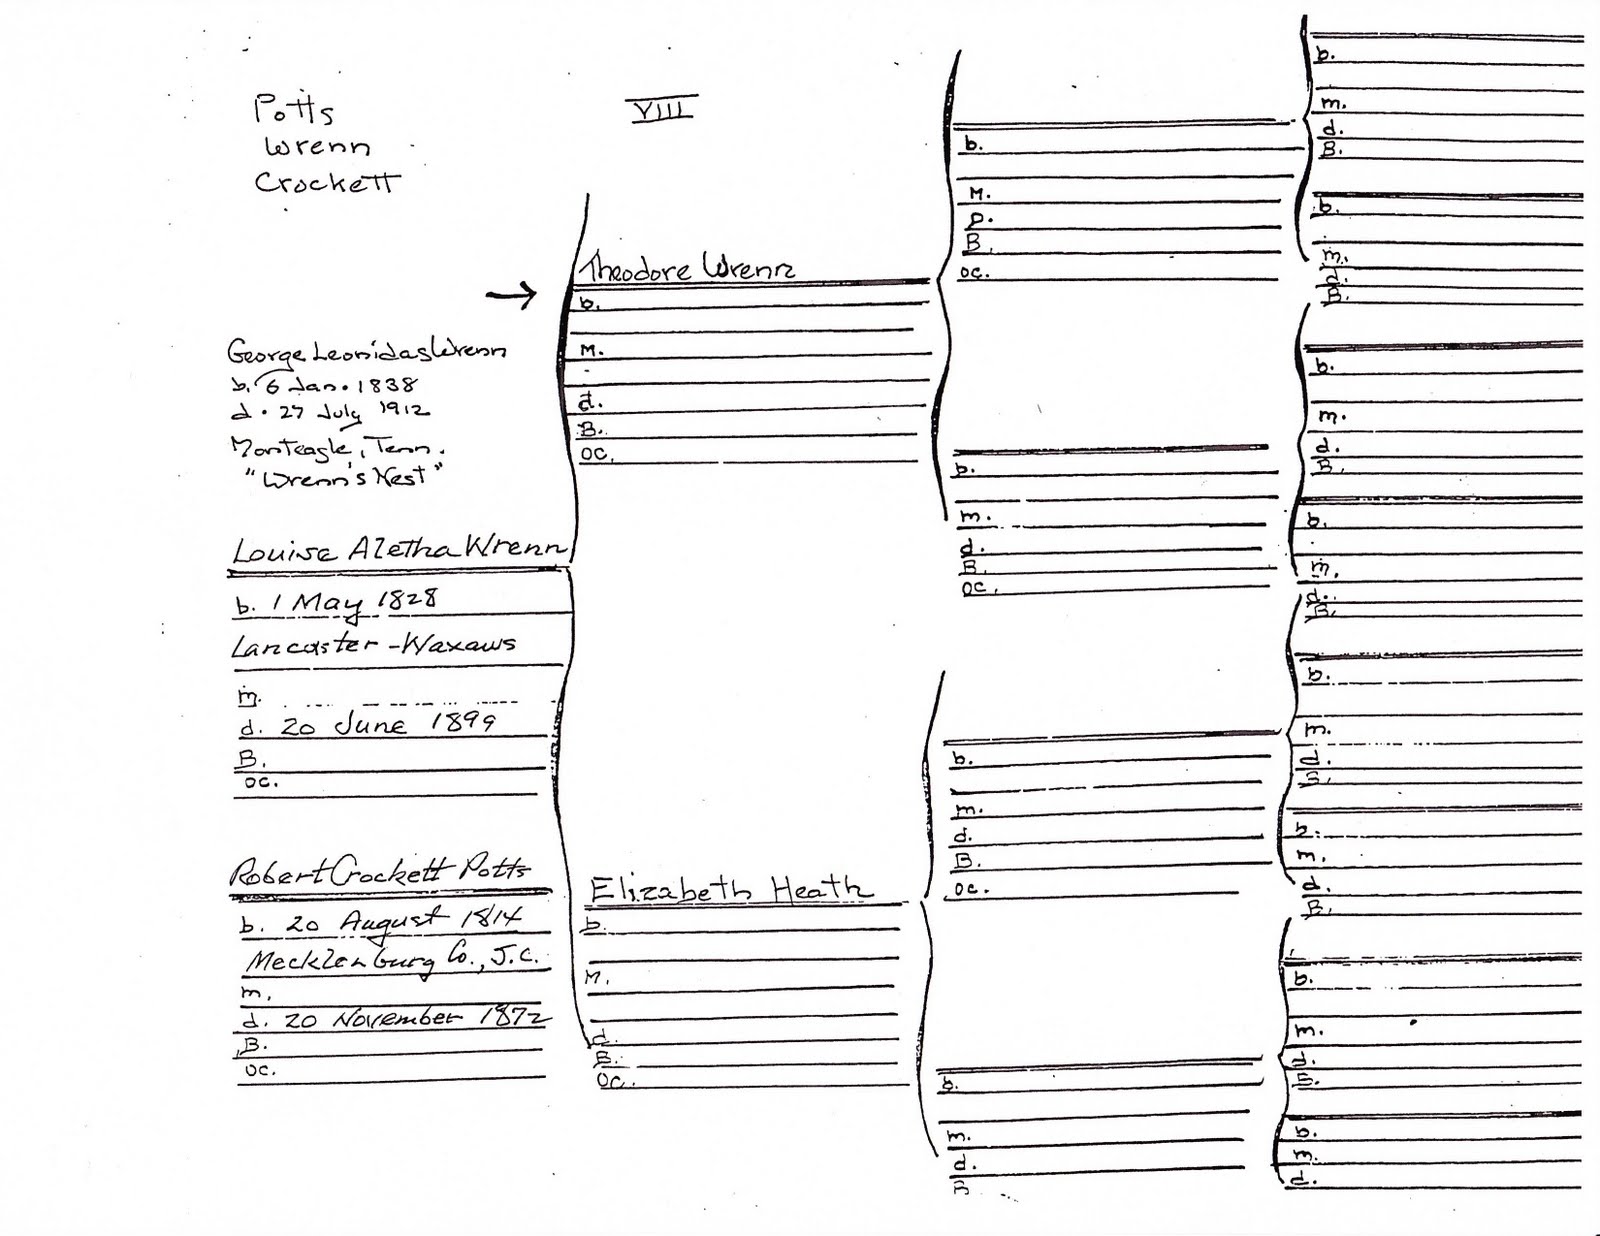 Potts
Wrenn
Crockett
VIII
George Leonidas Wrenn
b. 6 Jan. 1838
d. 27 July 1912
Monteagle, Tenn.
"Wrenn's Nest"
Louise Aletha Wrenn
b. 1 May 1828
Lancaster-Waxaws
m.
d. 20 June 1899
B.
oc.
Robert Crockett Potts
b. 20 August 1814
Mecklenburg Co., J.C.
m.
d. 20 November 1872
B.
oc.
→
Theodore Wrenn
b.
M.
d.
B.
oc.
Elizabeth Heath
b.
M.
d.
B.
oc.
b.
M.
D.
B.
oc.
b.
m.
d.
B.
oc.
b.
m.
d.
B.
oc.
b.
m.
d.
B
b.
m.
d.
B.
b.
m.
d.
B.
b.
m.
d.
B.
b.
m.
d.
B.
b.
m.
d.
B.
b.
m.
d.
B.
b.
m.
d.
B.
b.
m.
d.